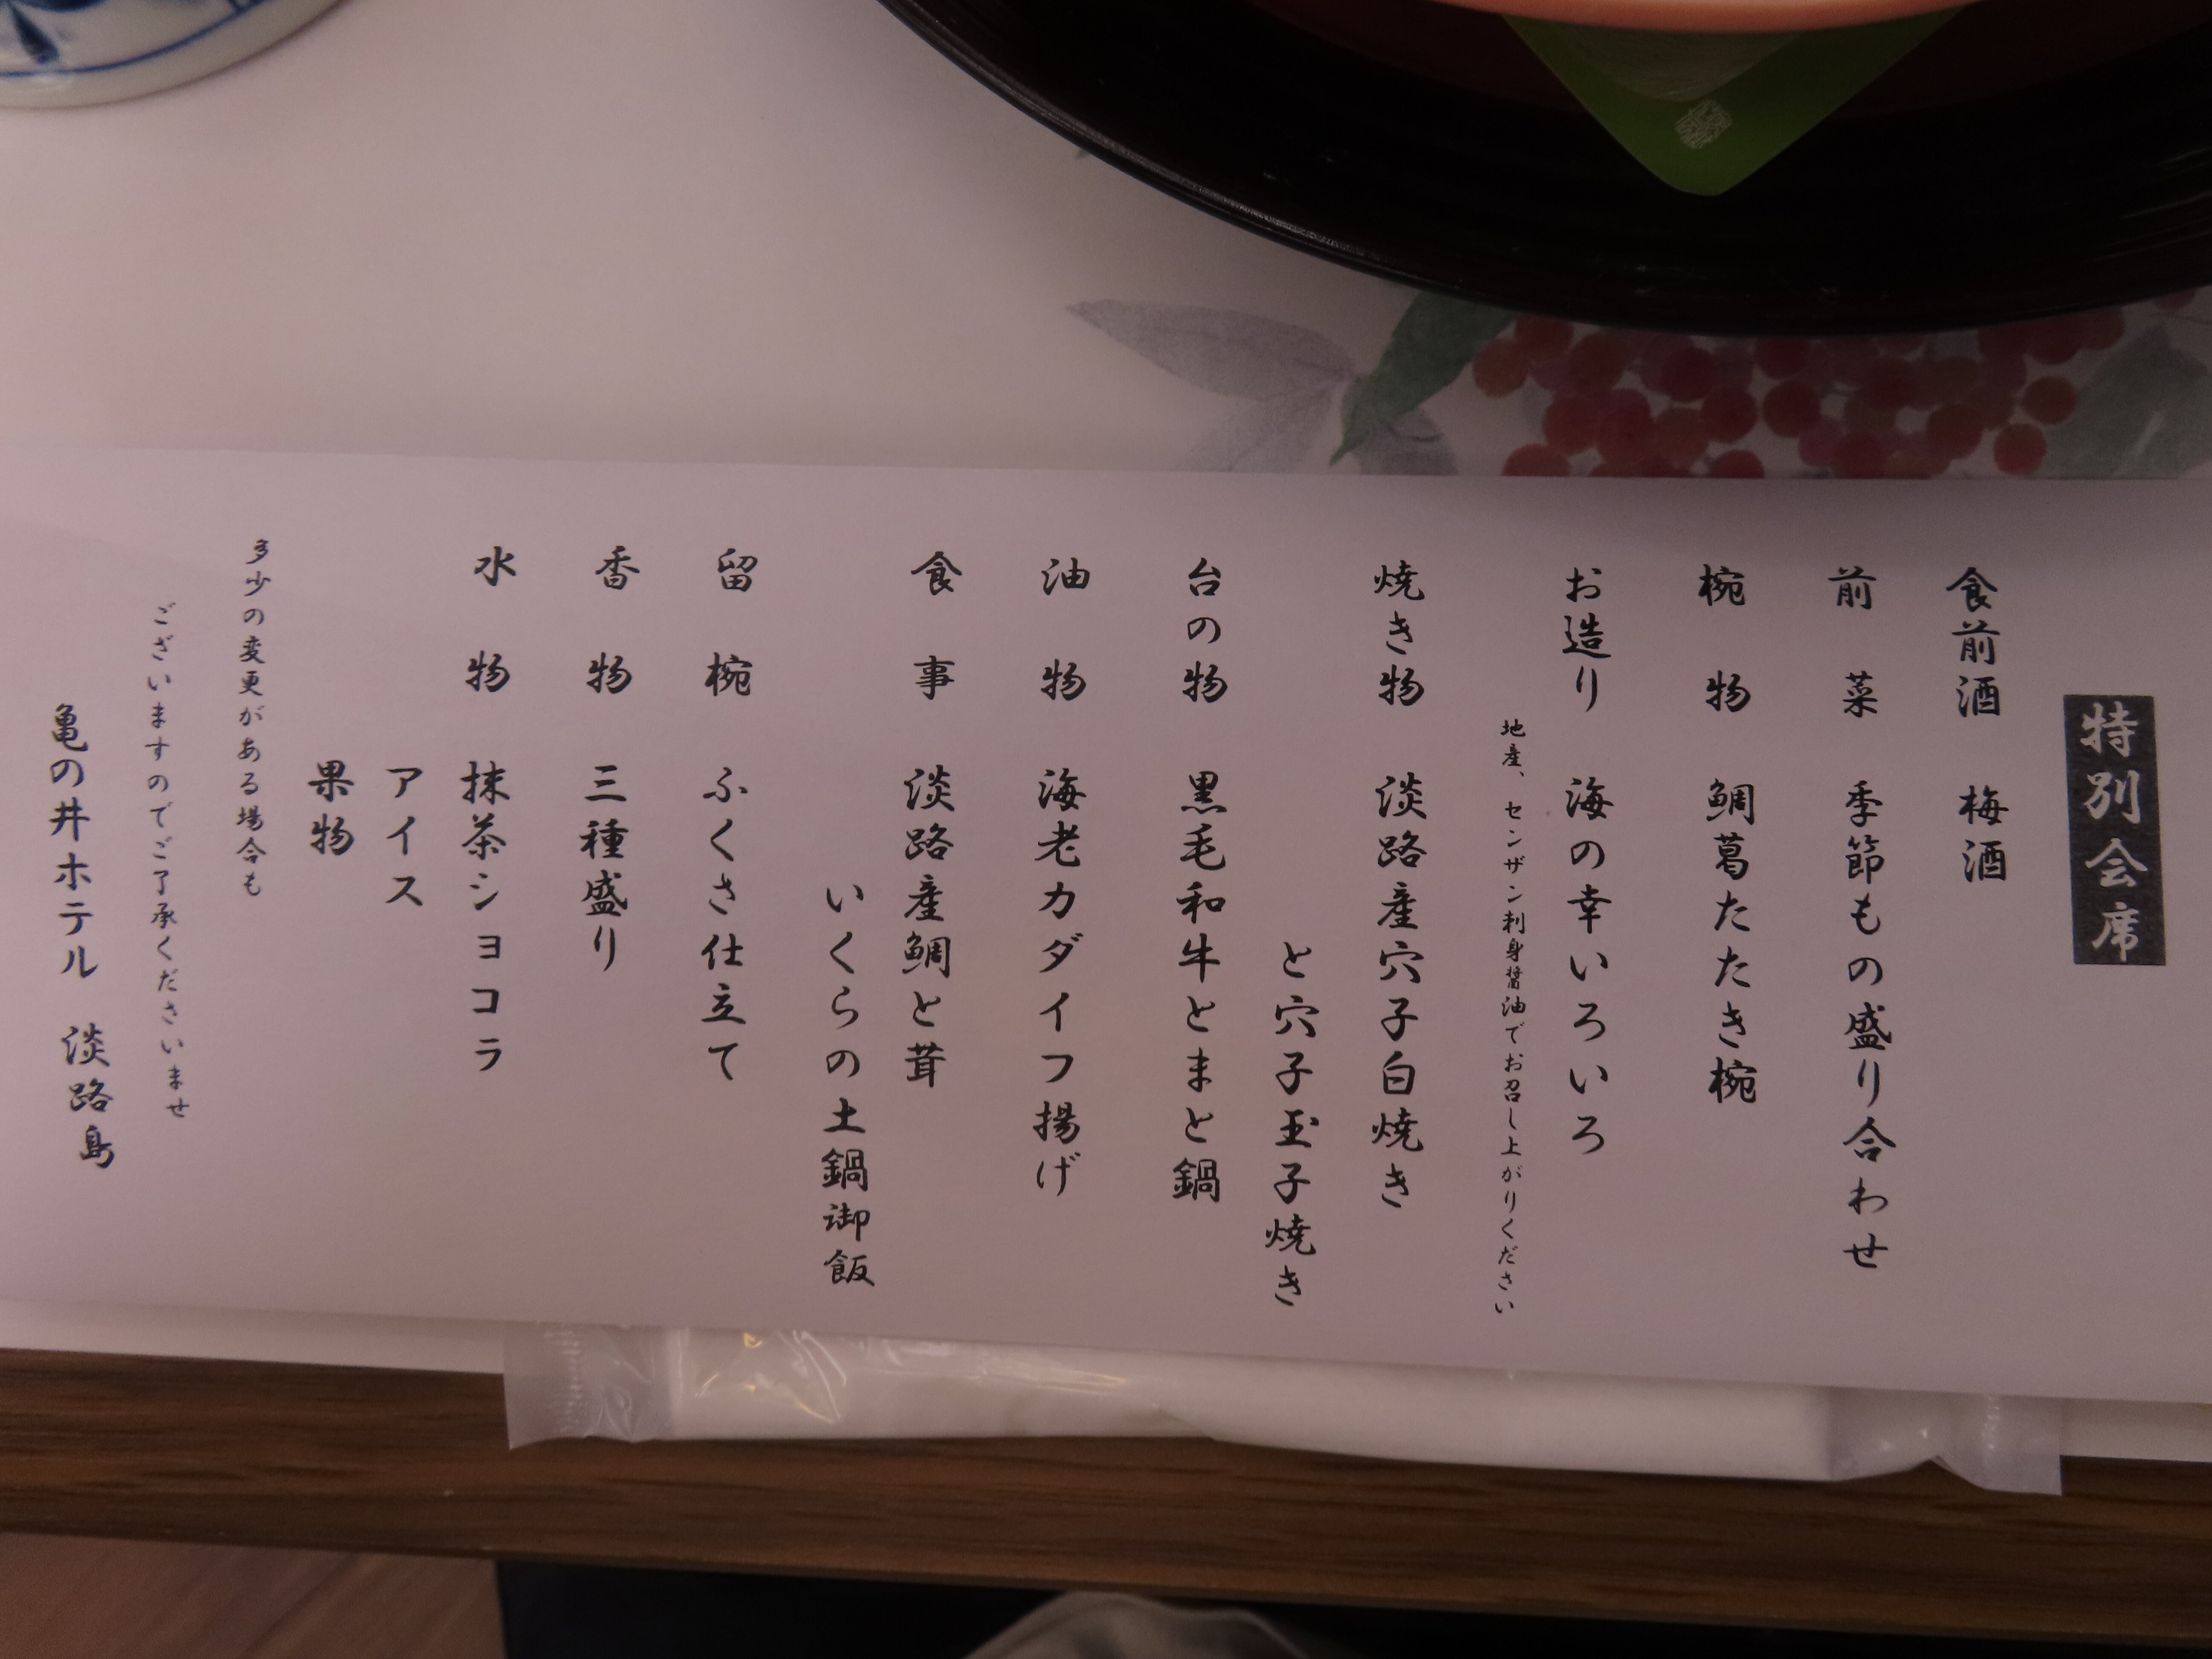 特別会席
食前酒　梅酒
前　菜　季節もの盛り合わせ
椀　物　鯛葛たたき椀
お造り　海の幸いろいろ
地産、センザン刺身醤油でお召し上がりください
焼き物　淡路産穴子白焼き
と穴子玉子焼き
台の物　黒毛和牛とまと鍋
油　物　海老カダイフ揚げ
食　事　淡路産鯛と茸
いくらの土鍋御飯
留　椀　ふくさ仕立て
香　物　三種盛り
水　物　抹茶ショコラ
アイス
果物
多少の変更がある場合も
ございますのでご了承くださいませ
亀の井ホテル　淡路島